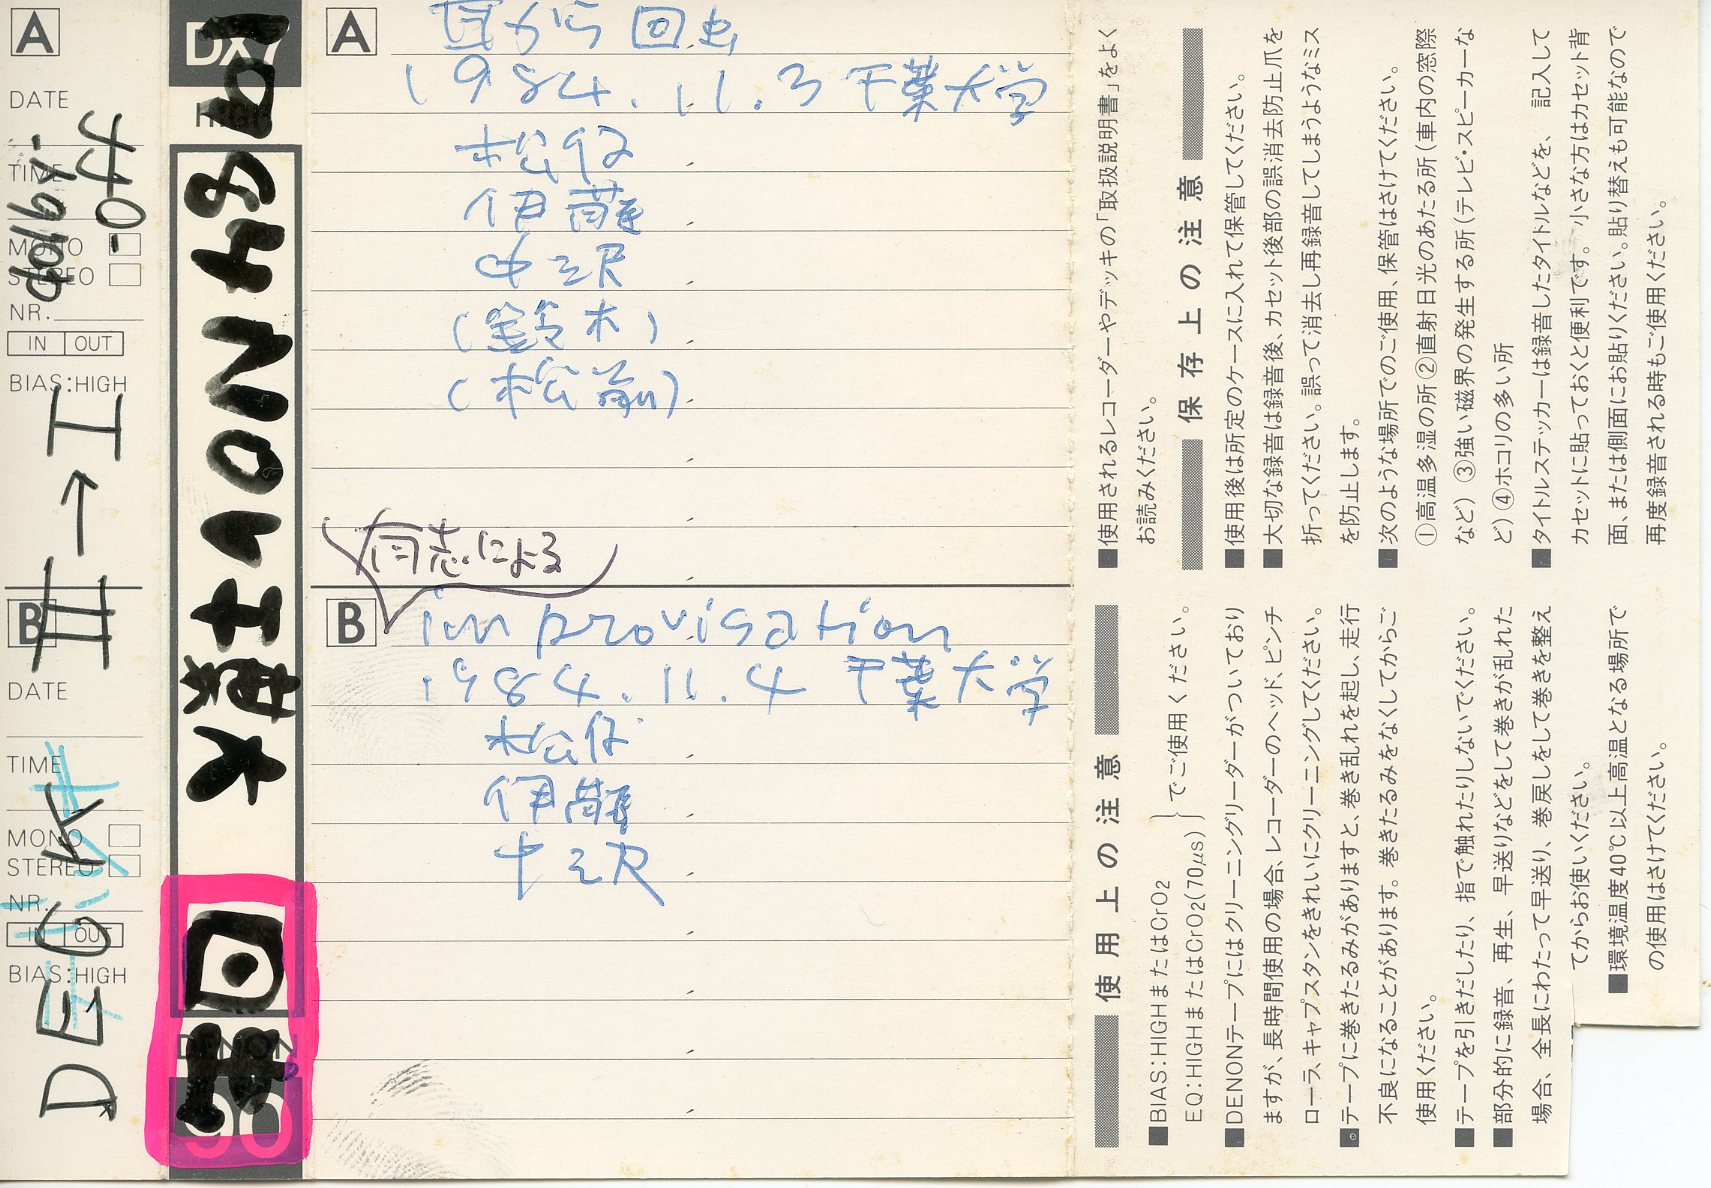 A
DATE
TIME
MONO
STEREO
NR.
IN OUT
BIAS:HIGH
dolbi-
off
II→I
B
DATE
TIME
MONO
STEREO
NR.
IN OUT
BIAS:HIGH
DX7
DENON
90
A
耳から回虫
1984.11.3 千葉大学
松
伊藤
中沢
(鈴木)
(松前)
同志による
B
improvisation
1984.11.4 千葉大学
松
伊藤
中沢
■使用されるレコーダーやデッキの「取扱説明書」をよく
お読みください。
保存上の注意
■使用後は所定のケースに入れて保管してください。
■大切な録音は録音後、カセット後部の誤消去防止爪を
折ってください。誤って消去し再録音してしまうようなミス
を防止します。
■次のような場所でのご使用、保管はさけてください。
①高温多湿の所②直射日光のあたる所(車内の窓際
など) ③強い磁界の発生する所(テレビ・スピーカーな
ど) ④ホコリの多い所
■タイトルステッカーは録音したタイトルなどを、記入して
カセットに貼っておくと便利です。小さな方はカセット背
面、または側面にお貼りください。貼り替えも可能なので
再度録音される時もご使用ください。
使用上の注意
■BIAS:HIGHまたはCrO2
EQ:HIGHまたはCrO2(70μs)}でご使用ください。
■DENONテープにはクリーニングリーダーがついており
ますが、長時間使用の場合、レコーダーのヘッド、ピンチ
ローラ、キャプスタンをきれいにクリーニングしてください。
■テープに巻きたるみがありますと、巻き乱れを起し、走行
不良になることがあります。巻きたるみをなくしてからご
使用ください。
■テープを引きだしたり、指で触れたりしないでください。
■部分的に録音、再生、早送りなどをして巻きが乱れた
場合、全長にわたって早送り、巻戻しをして巻きを整え
てからお使いください。
■環境温度40℃以上高温となる場所で
の使用はさけてください。